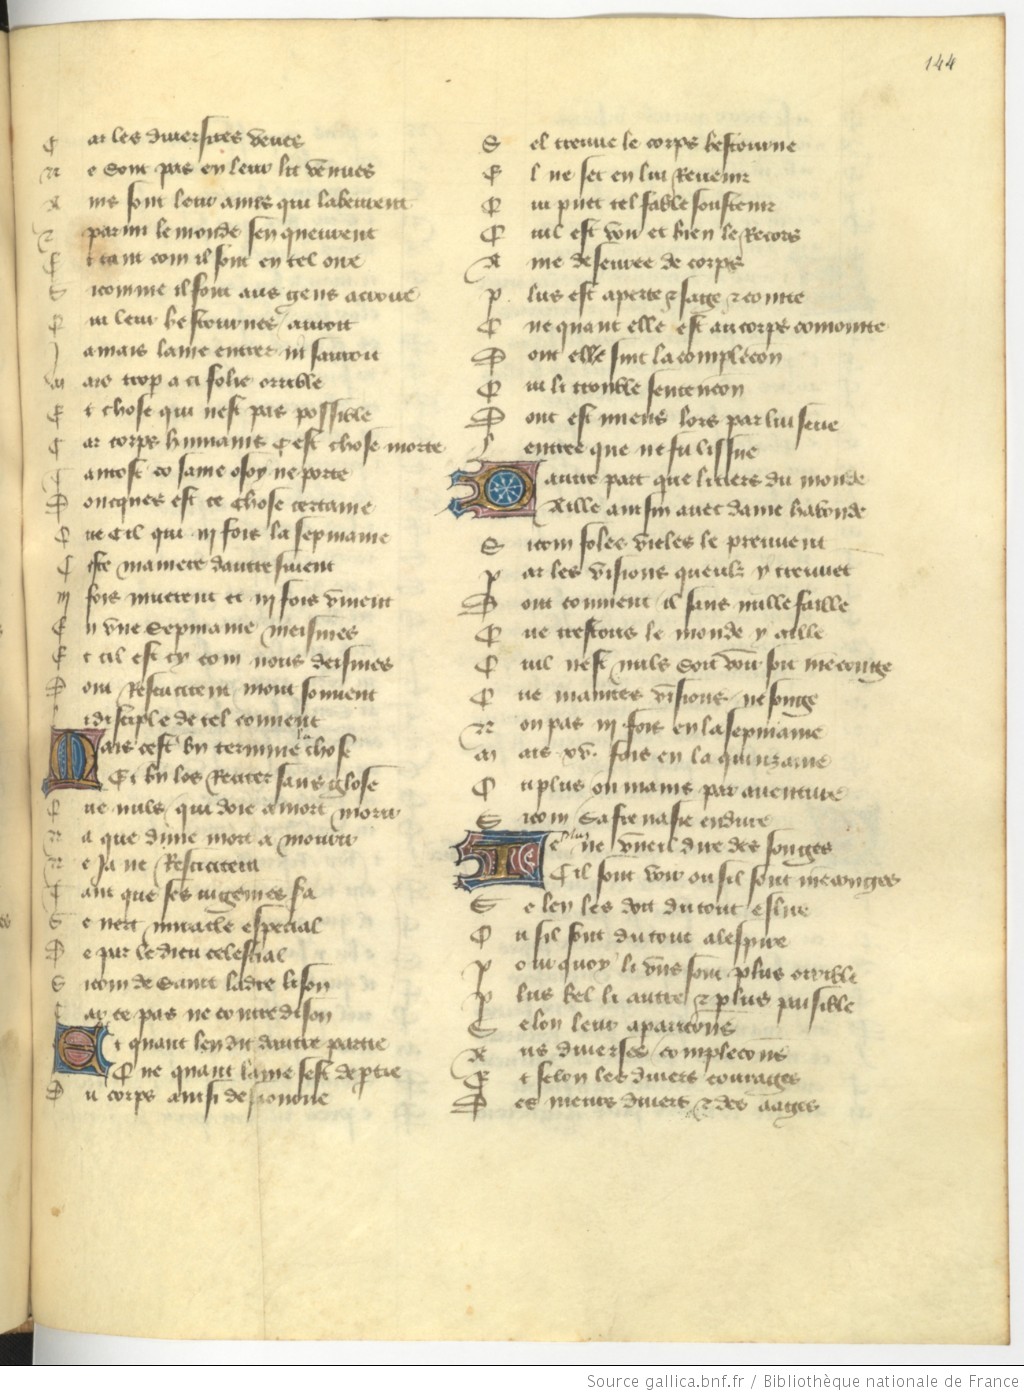 144
Car les diversites veues
Ne sont pas en leur lit venues
Ains sont leur ames qui labeurent
Et parmi le monde sen queurent
Et tant com il sont en tel oire
Sicomme il font aus gens acroire
Qui leur bestournes auroit
Jamais lame entrer ni sauroit
Mais trop a ci folie orrible
Et chose qui nest pas possible
Car corps humains cest chose morte
Tantost co same o soy ne porte
Doncques est ce chose certaine
Que cil qui iii fois la sepmaine
Ceste maniere dautre sivent
iii fois muerent et iii fois vivent
En vne sepmaine meismes
Et cil est cy com nous deismes
Dont Resuscitent mout souuent
Li disciple de tel couuent
Mais cest bn termine chose
Et bn los Reciter sans glose
Que nuls qui doie a mort morir
Na que dune mort a mourir
Ne Ja ne Resuscitera
Tant que ses iugemes sa
Se nert miracle especial
De par le dieu celestial
Sicom de saint ladre lison
Car ce pas ne contredison
Et quant len dit dautre partie
Que quant lame sest deptie
Du corps ainsi desaourne
Sel treuue le corps bestourne
El ne set en lui Reuenir
Qui puet tel fable soustenir
Quil est voir et bien le Recors
Ame desevree de corps
Plus est aperte et sage et cointe
Que quant elle est au corps conjointe
Dont elle suit la complecon
Qui li trouble sentencon
Dont est miens lors par lui seue
Lentree que ne fu lissue
Dautre part que li tiers du monde
Aille ainsin auec dame habonde
Sicom foles vielles le preuuent
Par les visions queulz y treuuet
Dont conuient il sans nulle faille
Que trestous le monde y aille
Quil nest nuls soit voir soit menconge
Que maintes visions ne songe
Non pas iii fois en la sepmaine
Mais xv. fois en la quinzaine
Ou plus ou mains par auenture
Sicom sa fantasie endure
Je plus ne vueil dire des songes
Cil sont voir ou sil sont menconges
Se len les doit du tout eslire
Ou sil sont du tout a despire
Pourquoy li vns sont plus orrible
Plus bel li autre et plus paisible
Selon leur aparicons
Aus diverses complecons
Et selon les divers courages
Des meurs divers et des aages
Source gallica.bnf.fr / Bibliothèque nationale de France